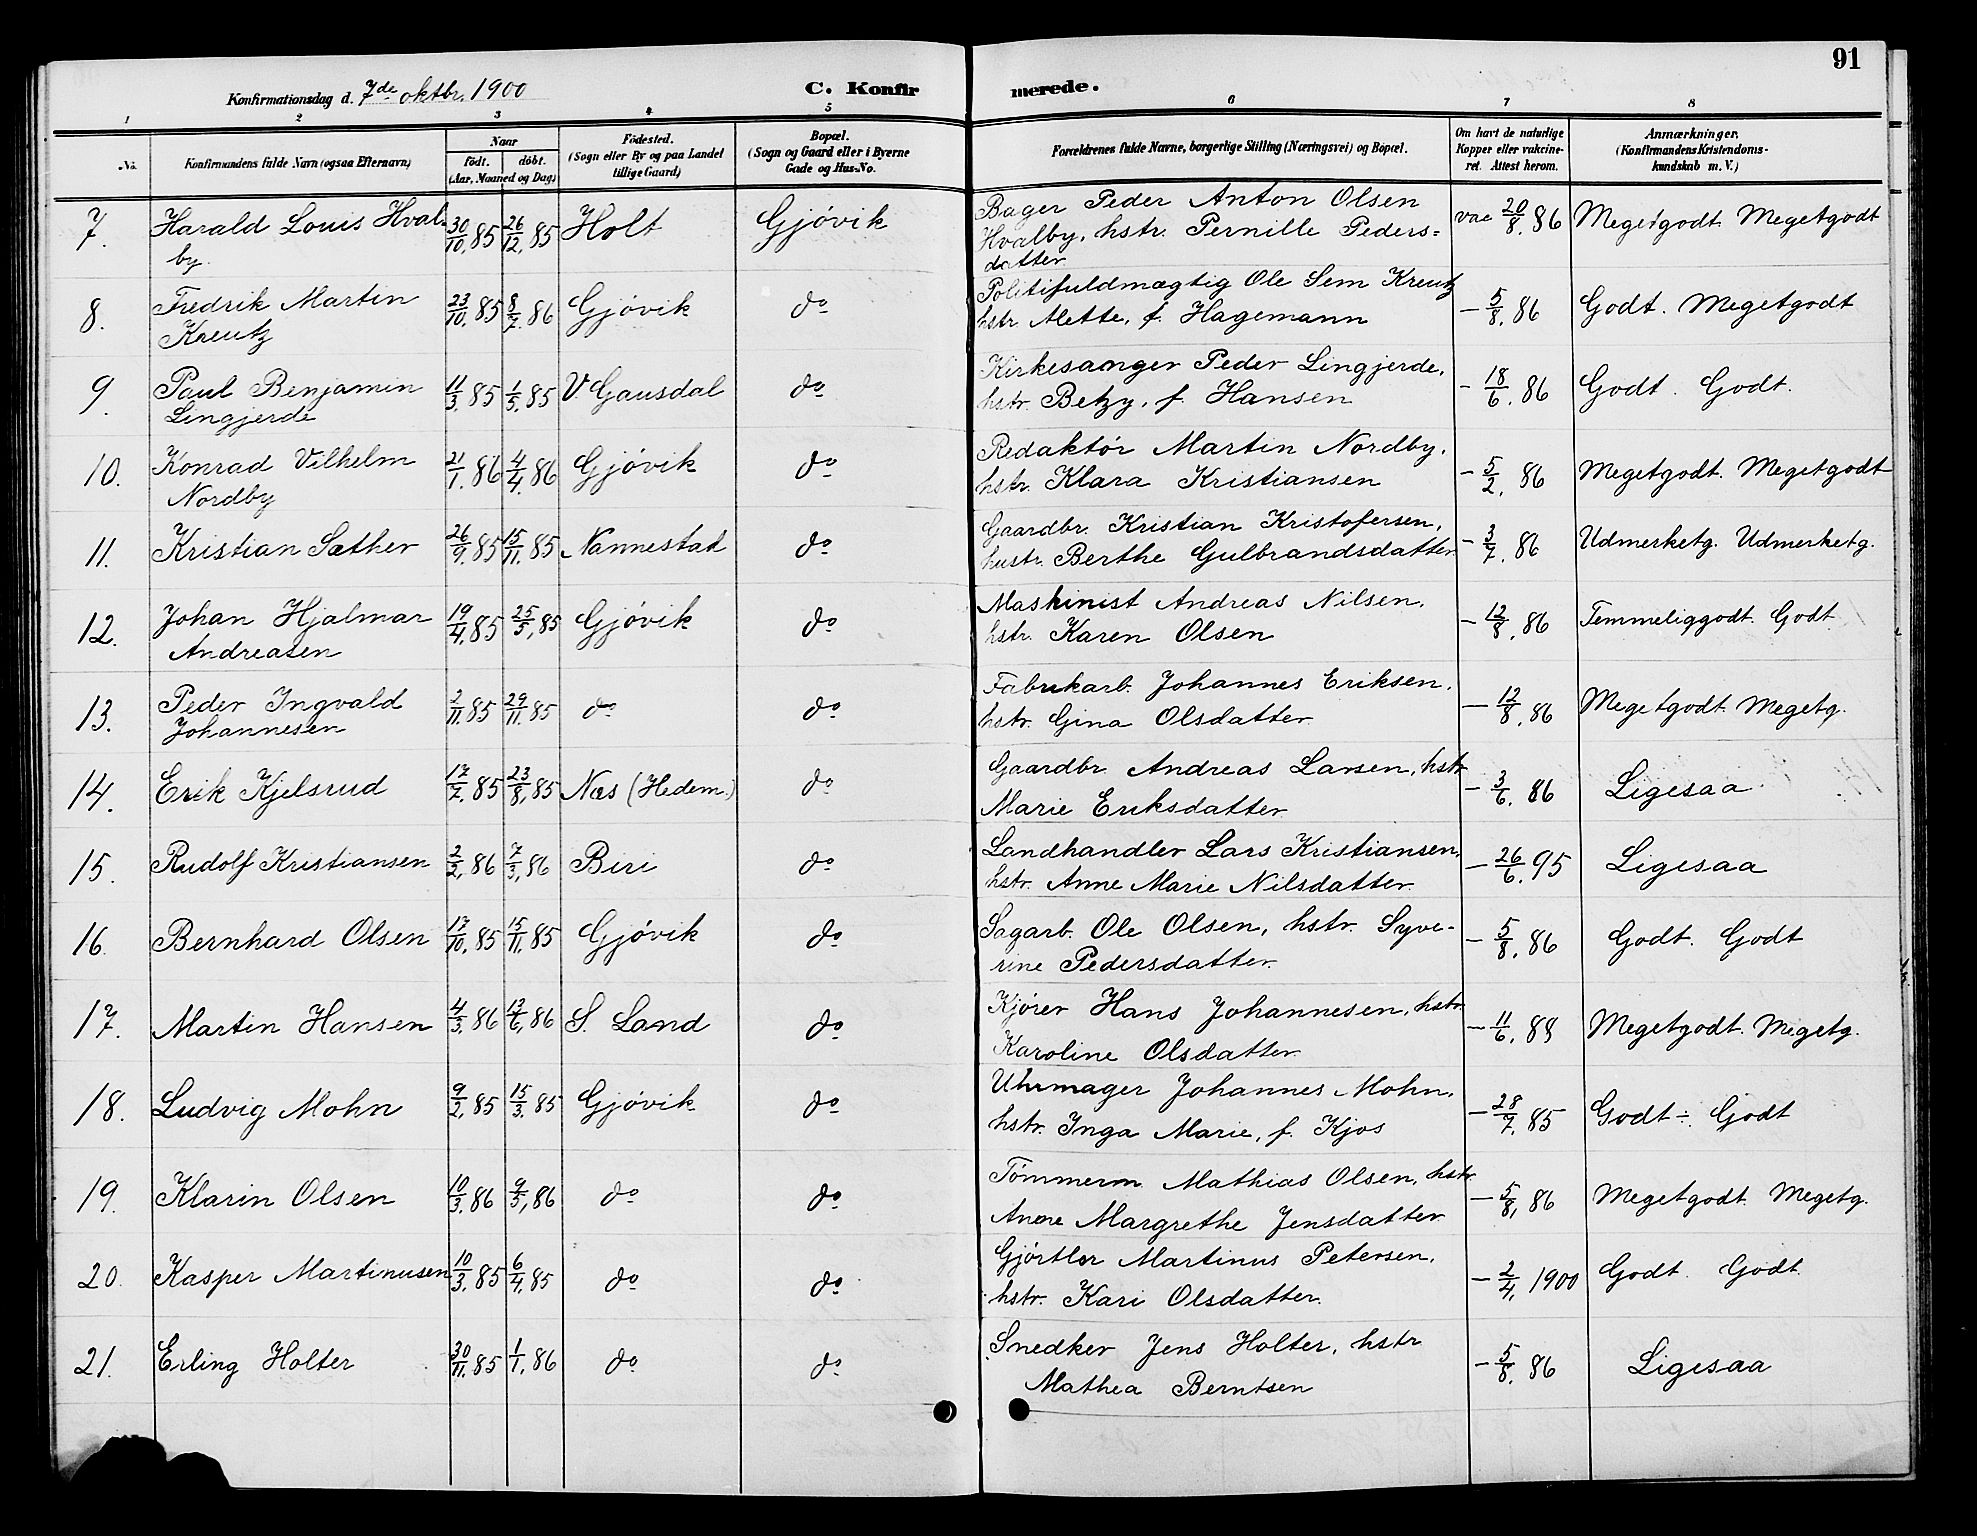 91
Konfirmationsdag d. 7de oktbr. 1900 C. Konfirmerede.
1 2 3 4 5 6 7 8
No. Konfirmandens fulde Navn (ogsaa Efternavn) Naar født. døbt. (Aar, Maaned og Dag) Fødested. (Sogn eller By og paa Landet tillige Gaard) Bopæl. (Sogn og Gaard eller i Byerne Gade og Hus-No. Forældrenes fulde Navne, borgerlige Stilling (Næringsvei) og Bopæl. Om havt de naturlige Kopper eller vakcineret. Attest herom. Anmærkninger. (Konfirmandens Kristendomskundskab m. V.)
7. Harald Louis Hval- 30/10. 85 26/12. 85 Holt Gjøvik Bager Peder Anton Olsen vac 20/8. 86 Megetgodt. Megetgodt
by. Hvalby, hstr. Pernille Peders-
datter
8. Fredrik Martin 23/10. 85 8/7. 86 Gjøvik do Politifuldmægtig Ole Sem Kreutz – 5/8. 86 Godt. Megetgodt
Kreutz hstr. Mette, f. Hagemann
9. Paul Benjamin 11/3. 85 1/5. 85 V. Gausdal do Kirkesanger Peder Lingjerde, – 18/6. 86 Godt. Godt.
Lingjerde hstr. Betzy, f. Hansen
10. Konrad Vilhelm 21/1. 86 4/4. 86 Gjøvik do Redaktør Martin Nordby, – 5/2. 86 Megetgodt. Megetgodt
Nordby hstr. Klara Kristiansen
11. Kristian Sæther 26/9. 85 15/11. 85 Nannestad do Gaardbr. Kristian Kristofersen, – 3/7. 86 Udmerketg. Udmerketg.
hustr. Berthe Gulbrandsdatter
12. Johan Hjalmar 19/4. 85 25/5. 85 Gjøvik do Maskinist Andreas Nilsen, – 12/8. 86 Temmeliggodt. Godt
Andreasen hstr. Karen Olsen
13. Peder Ingvald 2/11. 85 29/11. 85 do do Fabrikarb. Johannes Eriksen, – 12/8. 86 Megetgodt. Megetg.
Johannesen hstr. Gina Olsdatter
14. Erik Kjelsrud 17/7. 85 23/8. 85 Næs (Hedem.) do Gaardbr. Andreas Larsen, hstr – 3/6. 86 Ligesaa
Marie Eriksdatter
15. Rudolf Kristiansen 2/2. 86 7/3. 86 Biri do Landhandler Lars Kristiansen, – 26/6. 95 Ligesaa
hstr. Anne Marie Nilsdatter
16. Bernhard Olsen 17/10. 85 15/11. 85 Gjøvik do Sagarb. Ole Olsen, hstr. Syve- – 5/8. 86 Godt. Godt
rine Pedersdatter
17. Martin Hansen 4/3. 86 13/6. 86 S. Land do Kjører Hans Johannesen, hstr. – 11/6. 88 Megetgodt. Megetg.
Karoline Olsdatter
18. Ludvig Mohn 9/2. 85 15/3. 85 Gjøvik do Uhrmager Johannes Mohn, – 28/7. 85 Godt ÷. Godt
hstr. Inga Marie, f. Kjos
19. Klarin Olsen 10/3. 86 9/5. 86 do do Tømmerm Mathias Olsen, hstr – 5/8. 86 Megetgodt. Megetg.
Anne Margrethe Jensdatter
20. Kasper Martinusen 10/3. 85 6/4. 85 do do Gjørtler Martinus Petersen, – 2/4. 1900 Godt. Godt
hstr. Kari Olsdatter.
21. Erling Holter 30/11. 85 1/1. 86 do do Snedker Jens Holter, hstr – 5/8. 86 Ligesaa
Mathea Berntsen